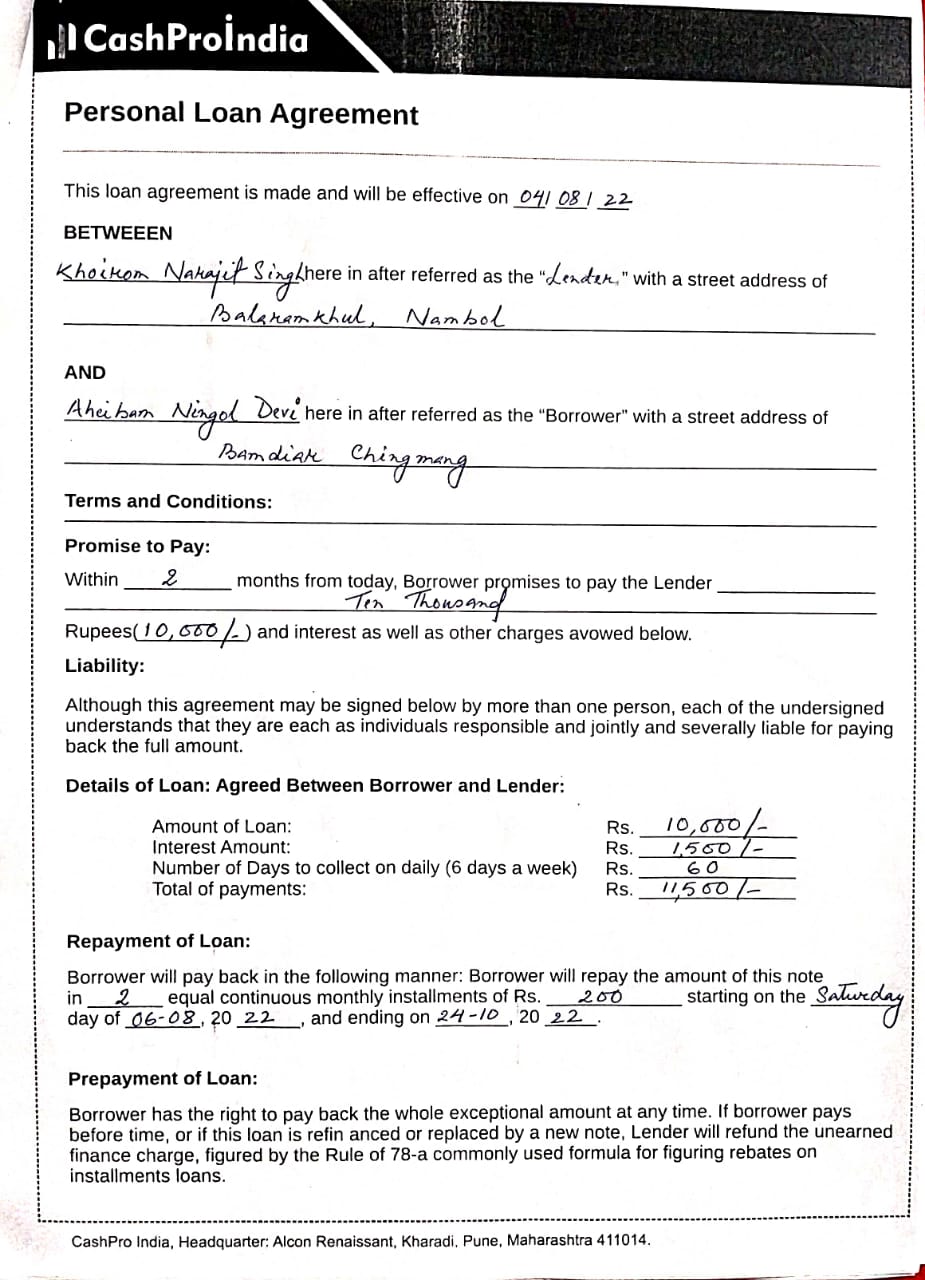 CashProIndia
Personal Loan Agreement
This loan agreement is made and will be effective on 04/ 08 / 22
BETWEEEN
Khoirom Narajit Singh here in after referred as the “Lender,” with a street address of
Balaramkhul, Nambol
AND
Aheibam Ningol Devi here in after referred as the “Borrower” with a street address of
Bamdiar Chingmang
Terms and Conditions:
Promise to Pay:
Within 2 months from today, Borrower promises to pay the Lender
Ten Thousand
Rupees(10,000/-) and interest as well as other charges avowed below.
Liability:
Although this agreement may be signed below by more than one person, each of the undersigned
understands that they are each as individuals responsible and jointly and severally liable for paying
back the full amount.
Details of Loan: Agreed Between Borrower and Lender:
Amount of Loan: Rs. 10,000/-
Interest Amount: Rs. 1,500/-
Number of Days to collect on daily (6 days a week) Rs. 60
Total of payments: Rs. 11,500/-
Repayment of Loan:
Borrower will pay back in the following manner: Borrower will repay the amount of this note
in 2 equal continuous monthly installments of Rs. 200 starting on the Saturday
day of 06-08, 20 22, and ending on 24-10, 20 22.
Prepayment of Loan:
Borrower has the right to pay back the whole exceptional amount at any time. If borrower pays
before time, or if this loan is refin anced or replaced by a new note, Lender will refund the unearned
finance charge, figured by the Rule of 78-a commonly used formula for figuring rebates on
installments loans.
CashPro India, Headquarter: Alcon Renaissant, Kharadi, Pune, Maharashtra 411014.